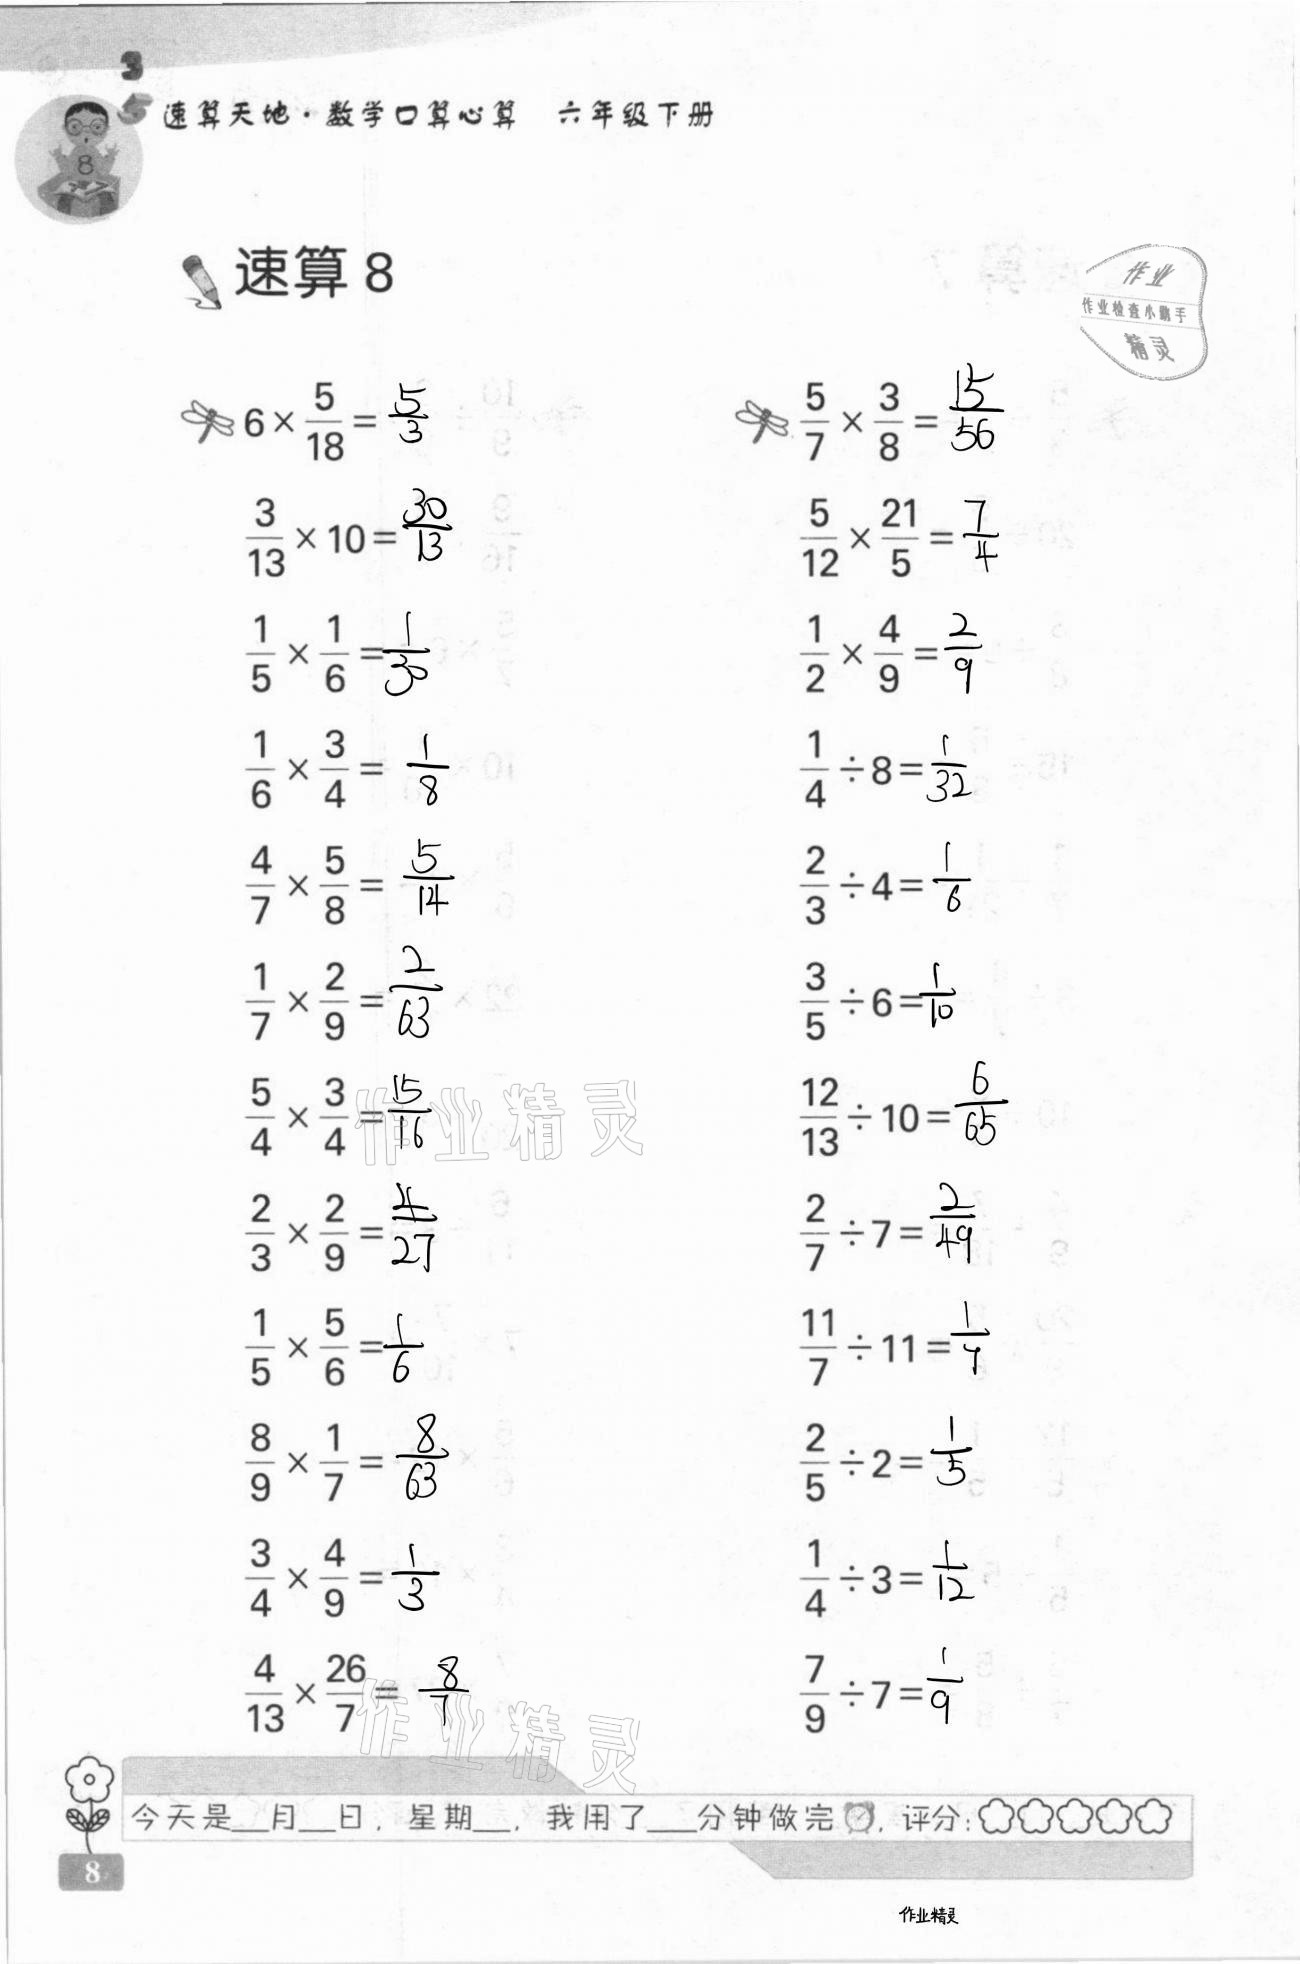 3
5
速算天地·数学口算心算 六年级下册
8
速算 8
作业
作业检查小助手
精灵
6 × 5/18 = 5/3
5/7 × 3/8 = 15/56
3/13 × 10 = 30/13
5/12 × 21/5 = 7/4
1/5 × 1/6 = 1/30
1/2 × 4/9 = 2/9
1/6 × 3/4 = 1/8
1/4 ÷ 8 = 1/32
4/7 × 5/8 = 5/14
2/3 ÷ 4 = 1/6
1/7 × 2/9 = 2/63
3/5 ÷ 6 = 1/10
5/4 × 3/4 = 15/16
12/13 ÷ 10 = 6/65
2/3 × 2/9 = 4/27
2/7 ÷ 7 = 2/49
1/5 × 5/6 = 1/6
11/7 ÷ 11 = 1/7
8/9 × 1/7 = 8/63
2/5 ÷ 2 = 1/5
3/4 × 4/9 = 1/3
1/4 ÷ 3 = 1/12
4/13 × 26/7 = 8/7
7/9 ÷ 7 = 1/9
作业精灵
作业精灵
今天是__月__日，星期__，我用了___分钟做完，评分：
8
作业精灵